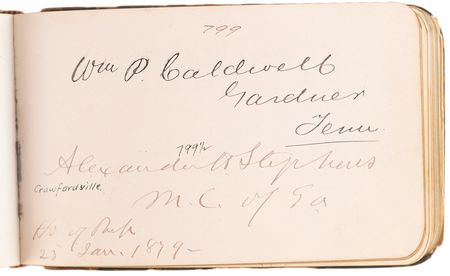 799
Wm P. Caldwell
Gardner
Tenn.
799½
Alexander H Stephens
Crawfordville.
M. C. of Ga
Ho of Rep
25 Jan. 1879-